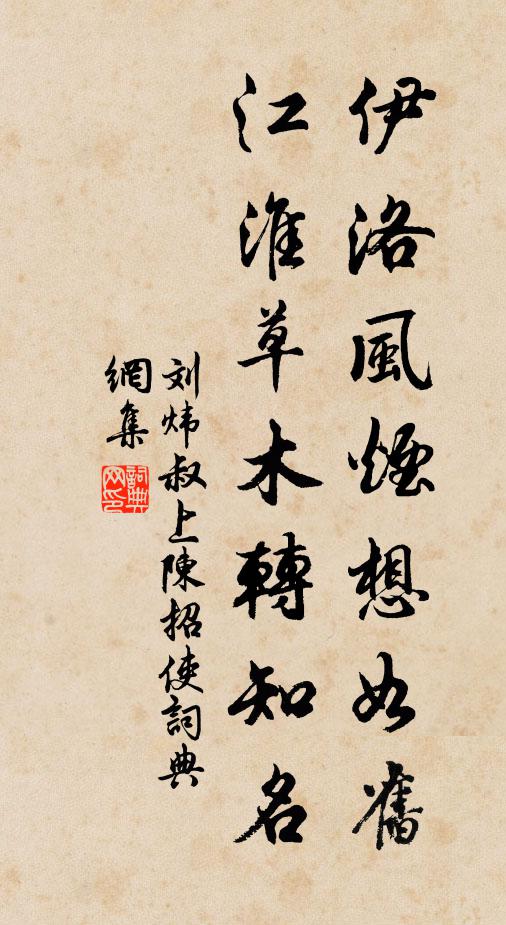 伊洛風煙想如舊
江淮草木轉知名
刘炜叔上陳招使詞典
網集
詞典
网印